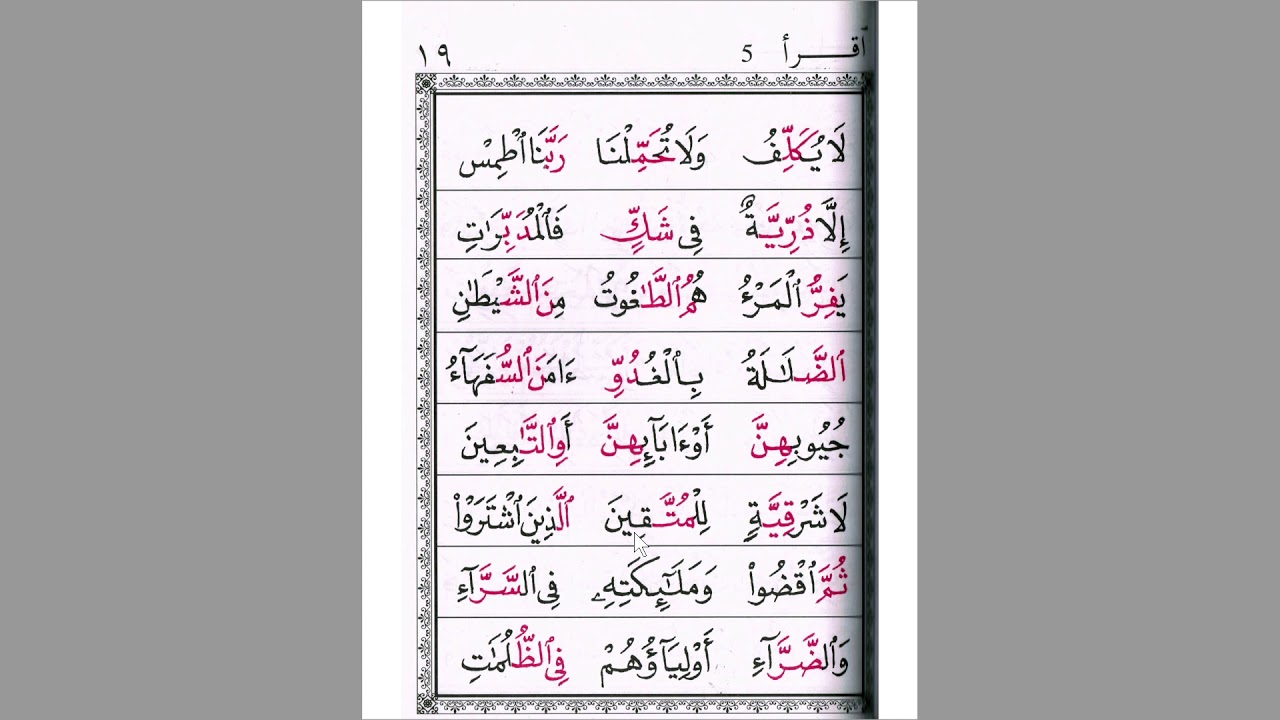 اقـــرأ 5 ١٩
لَا يُكَلِّفُ وَلَا تُحَمِّلْنَا رَبَّنَا ٱطْمِسْ
إِلَّا ذُرِّيَّةٌ فِى شَكٍّ فَٱلْمُدَبِّرَٰتِ
يَفِرُّ ٱلْمَرْءُ هُمُ ٱلطَّٰغُوتُ مِنَ ٱلشَّيْطَٰنِ
ٱلضَّلَٰلَةُ بِٱلْغُدُوِّ ءَامَنَ ٱلسُّفَهَآءُ
جُيُوبِهِنَّ أَوْءَابَآئِهِنَّ أَوِٱلتَّٰبِعِينَ
لَا شَرْقِيَّةٍ لِلْمُتَّقِينَ ٱلَّذِينَ ٱشْتَرَوُا۟
ثُمَّ ٱقْضُوٓا۟ وَمَلَٰٓئِكَتِهِۦ فِى ٱلسَّرَّآءِ
وَٱلضَّرَّآءِ أَوْلِيَآؤُهُمْ فِى ٱلظُّلُمَٰتِ